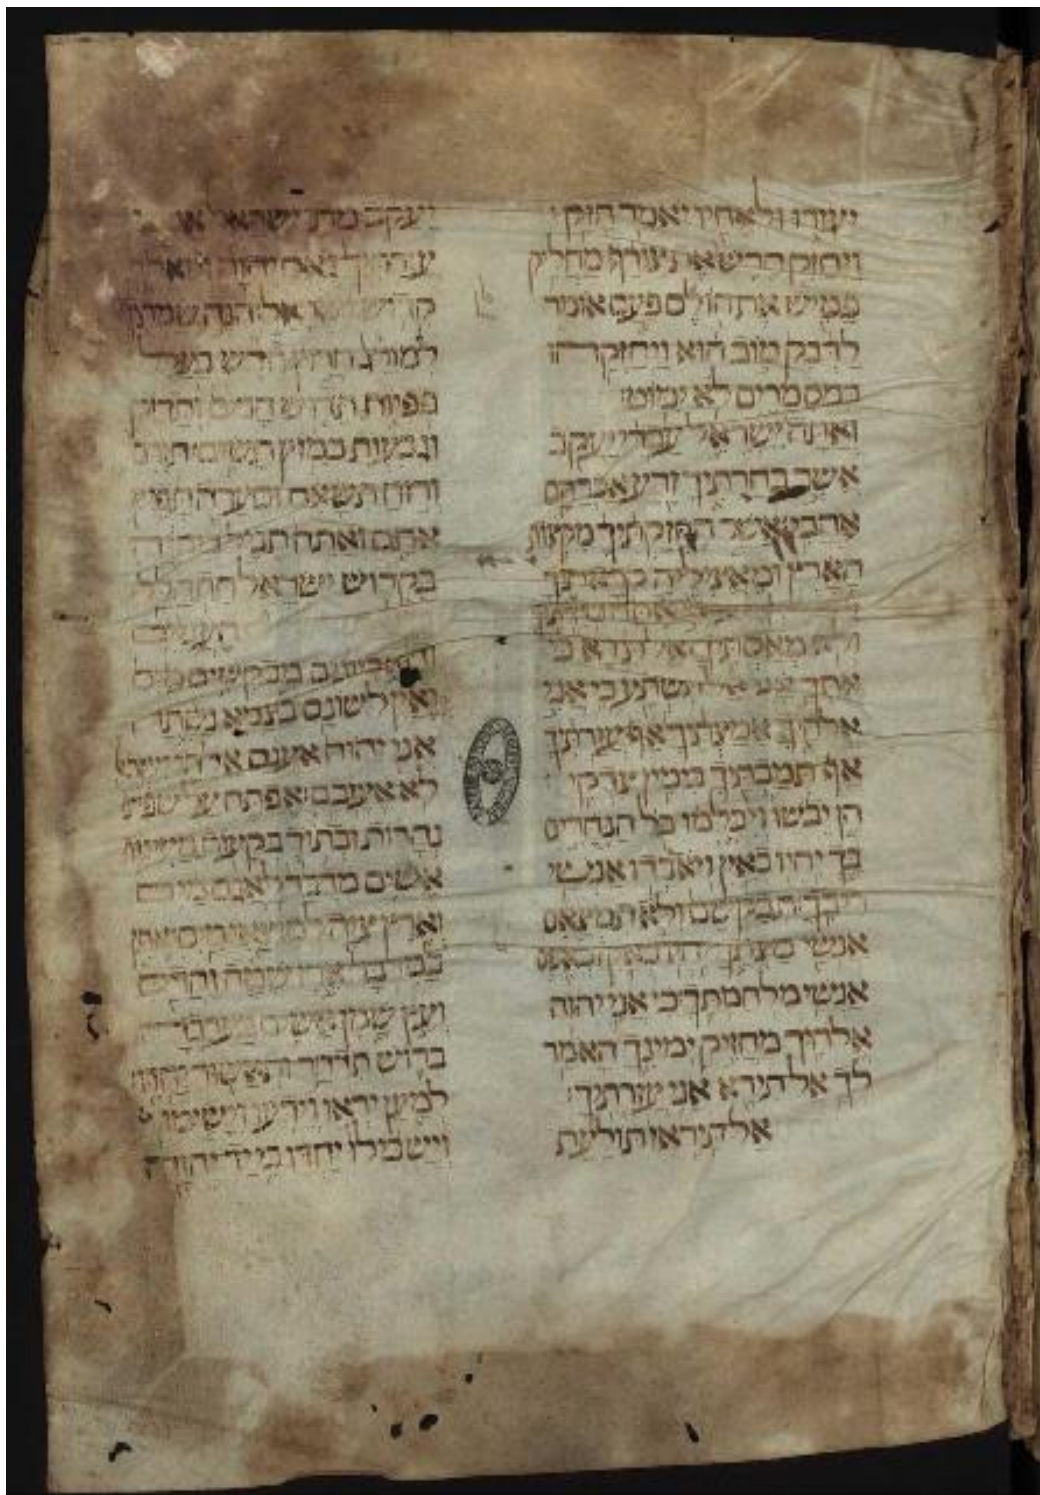 יעזרו ולאחיו יאמר חזק
ויחזק חרש את צורף מחליק
פטיש את הולם פעם אומר
לדבק טוב הוא ויחזקהו
במסמרים לא ימוט
ואתה ישראל עבדי יעקב
אשר בחרתיך זרע אברהם
אהבי אשר החזקתיך מקצות
הארץ ומאציליה קראתיך
ולא מאסתיך אל תירא כי
אתך אני אל תשתע כי אני
אלהיך אמצתיך אף עזרתיך
אף תמכתיך בימין צדקי
הן יבשו ויכלמו כל הנחרים
בך יהיו כאין ויאבדו אנשי
ריבך תבקשם ולא תמצאם
אנשי מצתך יהיו כאין וכאפס
אנשי מלחמתך כי אני יהוה
אלהיך מחזיק ימינך האמר
לך אל תירא אני עזרתיך
אל תיראי תולעת
יעקב מתי ישראל אני
עזרתיך נאם יהוה וגואלך
קדוש ישראל הנה שמתיך
למורג חרוץ חדש בעל
פפיות תדוש הרים ותדיק
וגבעות כמוץ תשים תזרם
ורוח תשאם וסערה תפיץ
אתם ואתה תגיל ביהוה
בקדוש ישראל תתהלל
העניים
והאביונים מבקשים מים
ואין לשונם בצמא נשתה
אני יהוה אענם אלהי ישראל
לא אעזבם אפתח על שפים
נהרות ובתוך בקעות מעינות
אשים מדבר לאגם מים
וארץ ציה למוצאי מים אתן
במדבר ארז שטה והדס
ועץ שמן אשים בערבה
ברוש תדהר ותאשור יחדו
למען יראו וידעו וישימו
וישכילו יחדו כי יד יהוה